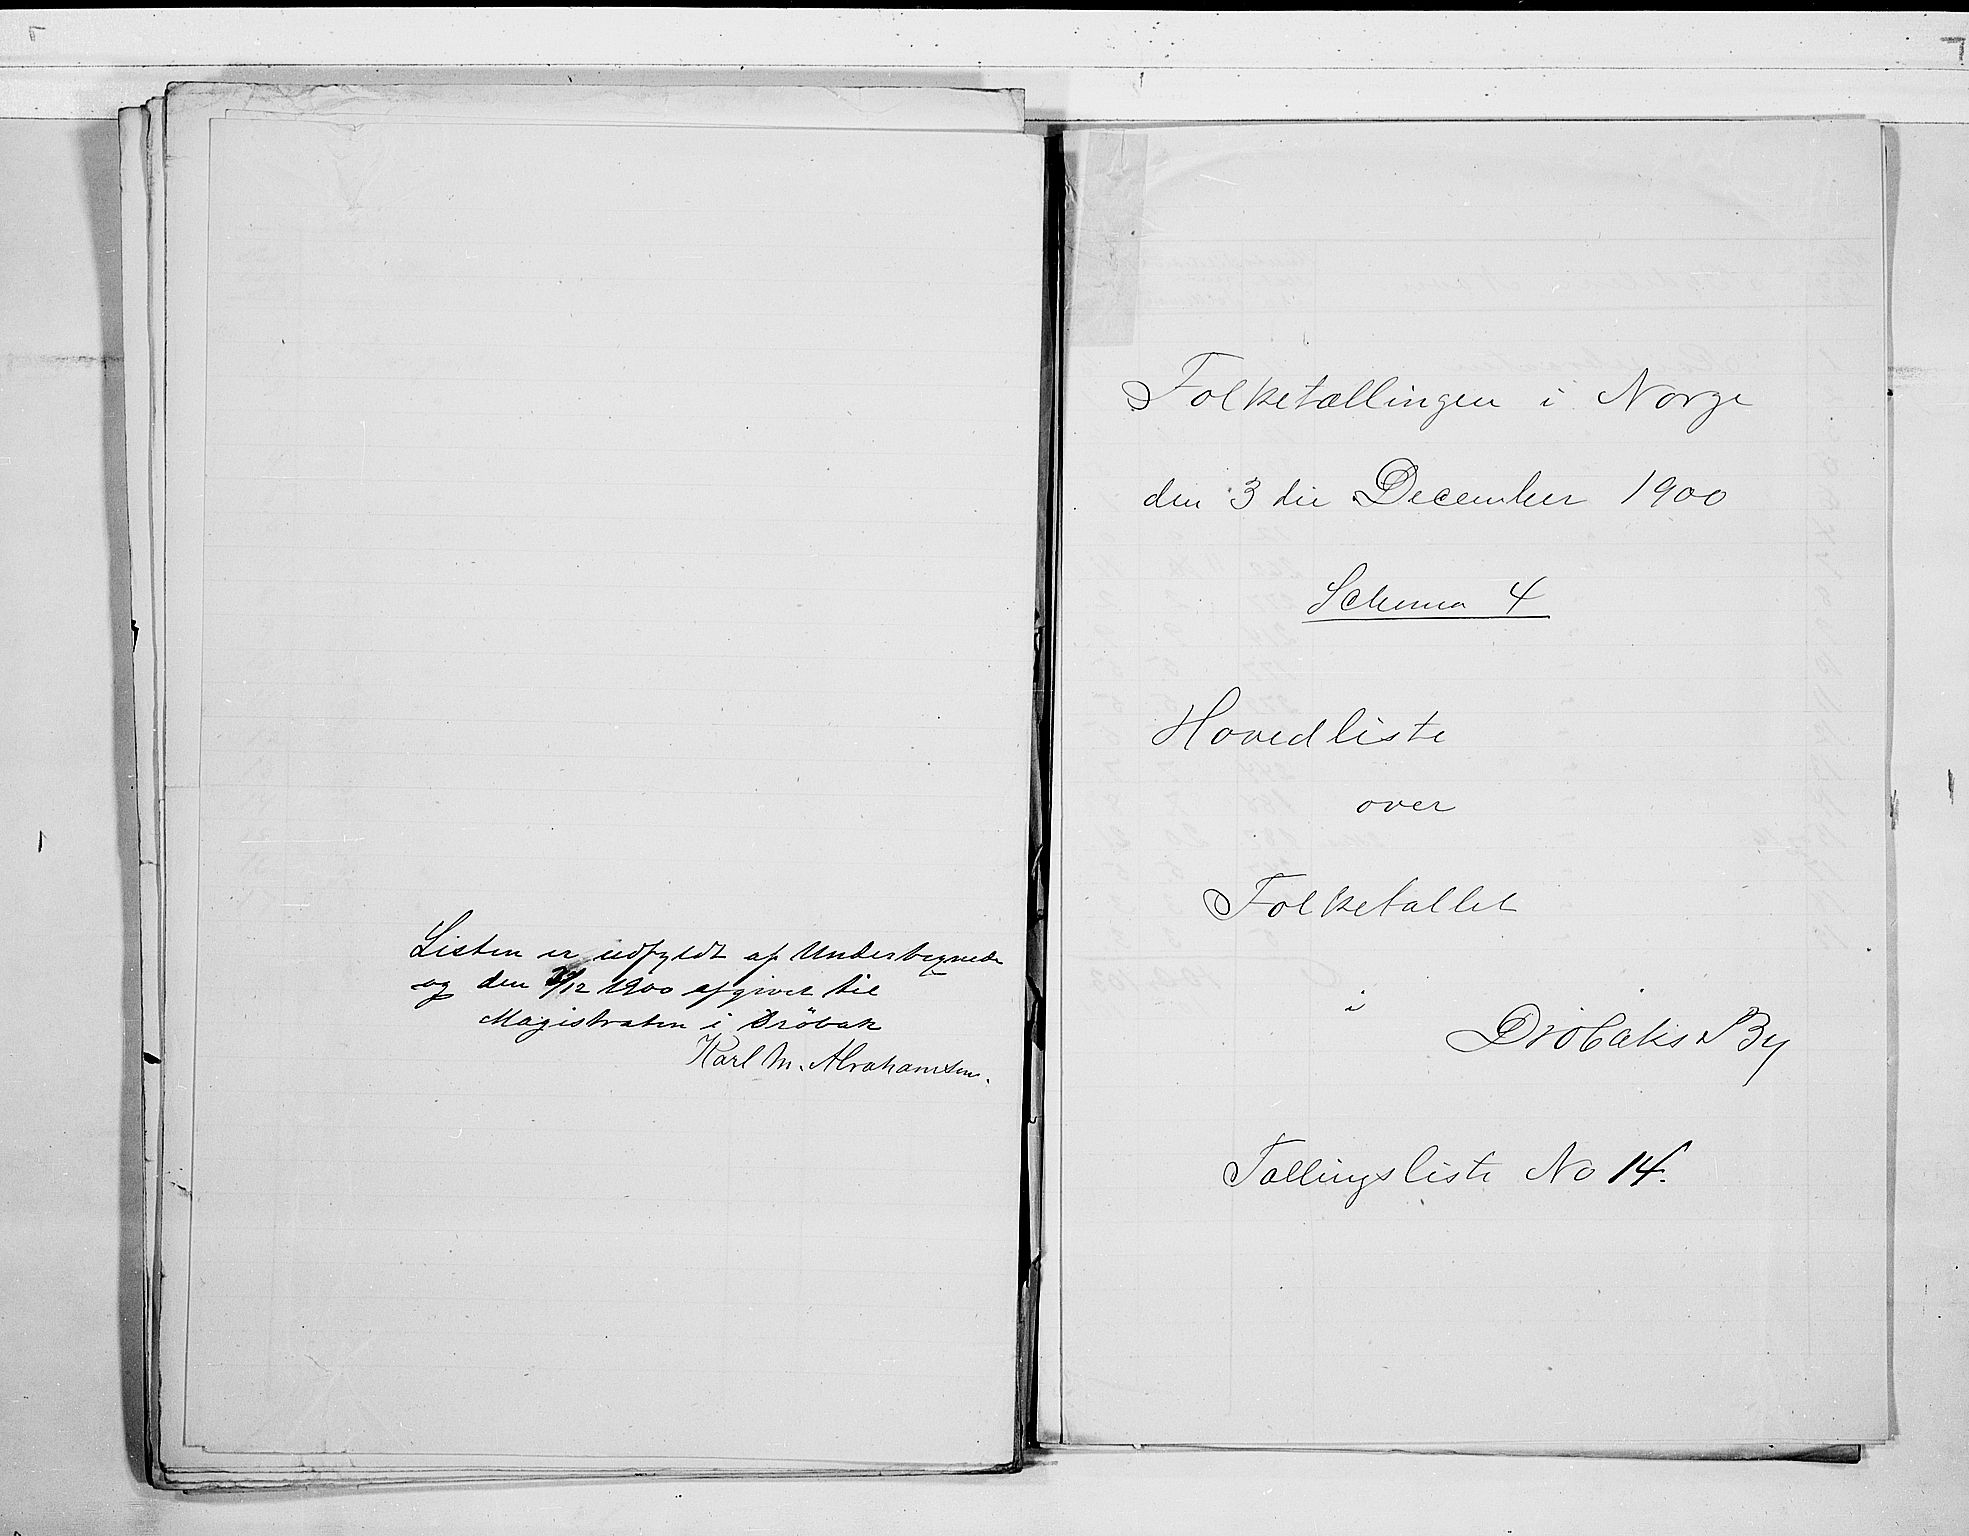 Listen er udfyldt af Undertegnede
og den /12 1900 afgivet til
Magistraten i Dröbak
Karl M. Abrahamsen.
Folketællingen i Norge
den 3 die December 1900
Schema 4
Hovedliste
over
Folketallet
i
Dröbaks By
Tællingsliste No 14.